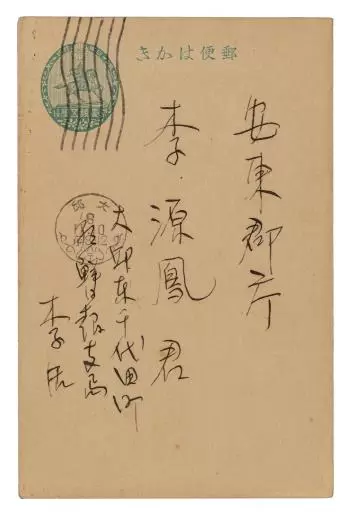 郵便はかき
安東郡庁
李源鳳君
大邱東千代田町
朝鮮日報支局
李活
大邱